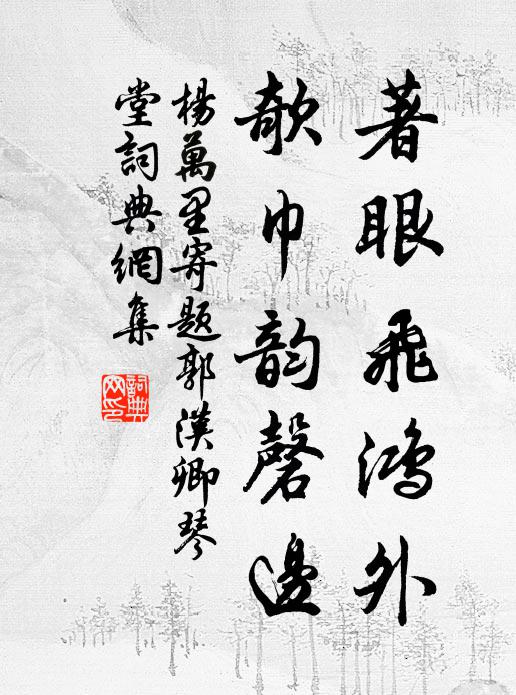 著眼飛鴻外
欹巾韵磬邊
楊萬里寄題郭漢卿琴
堂詞典網集
詞典
网印